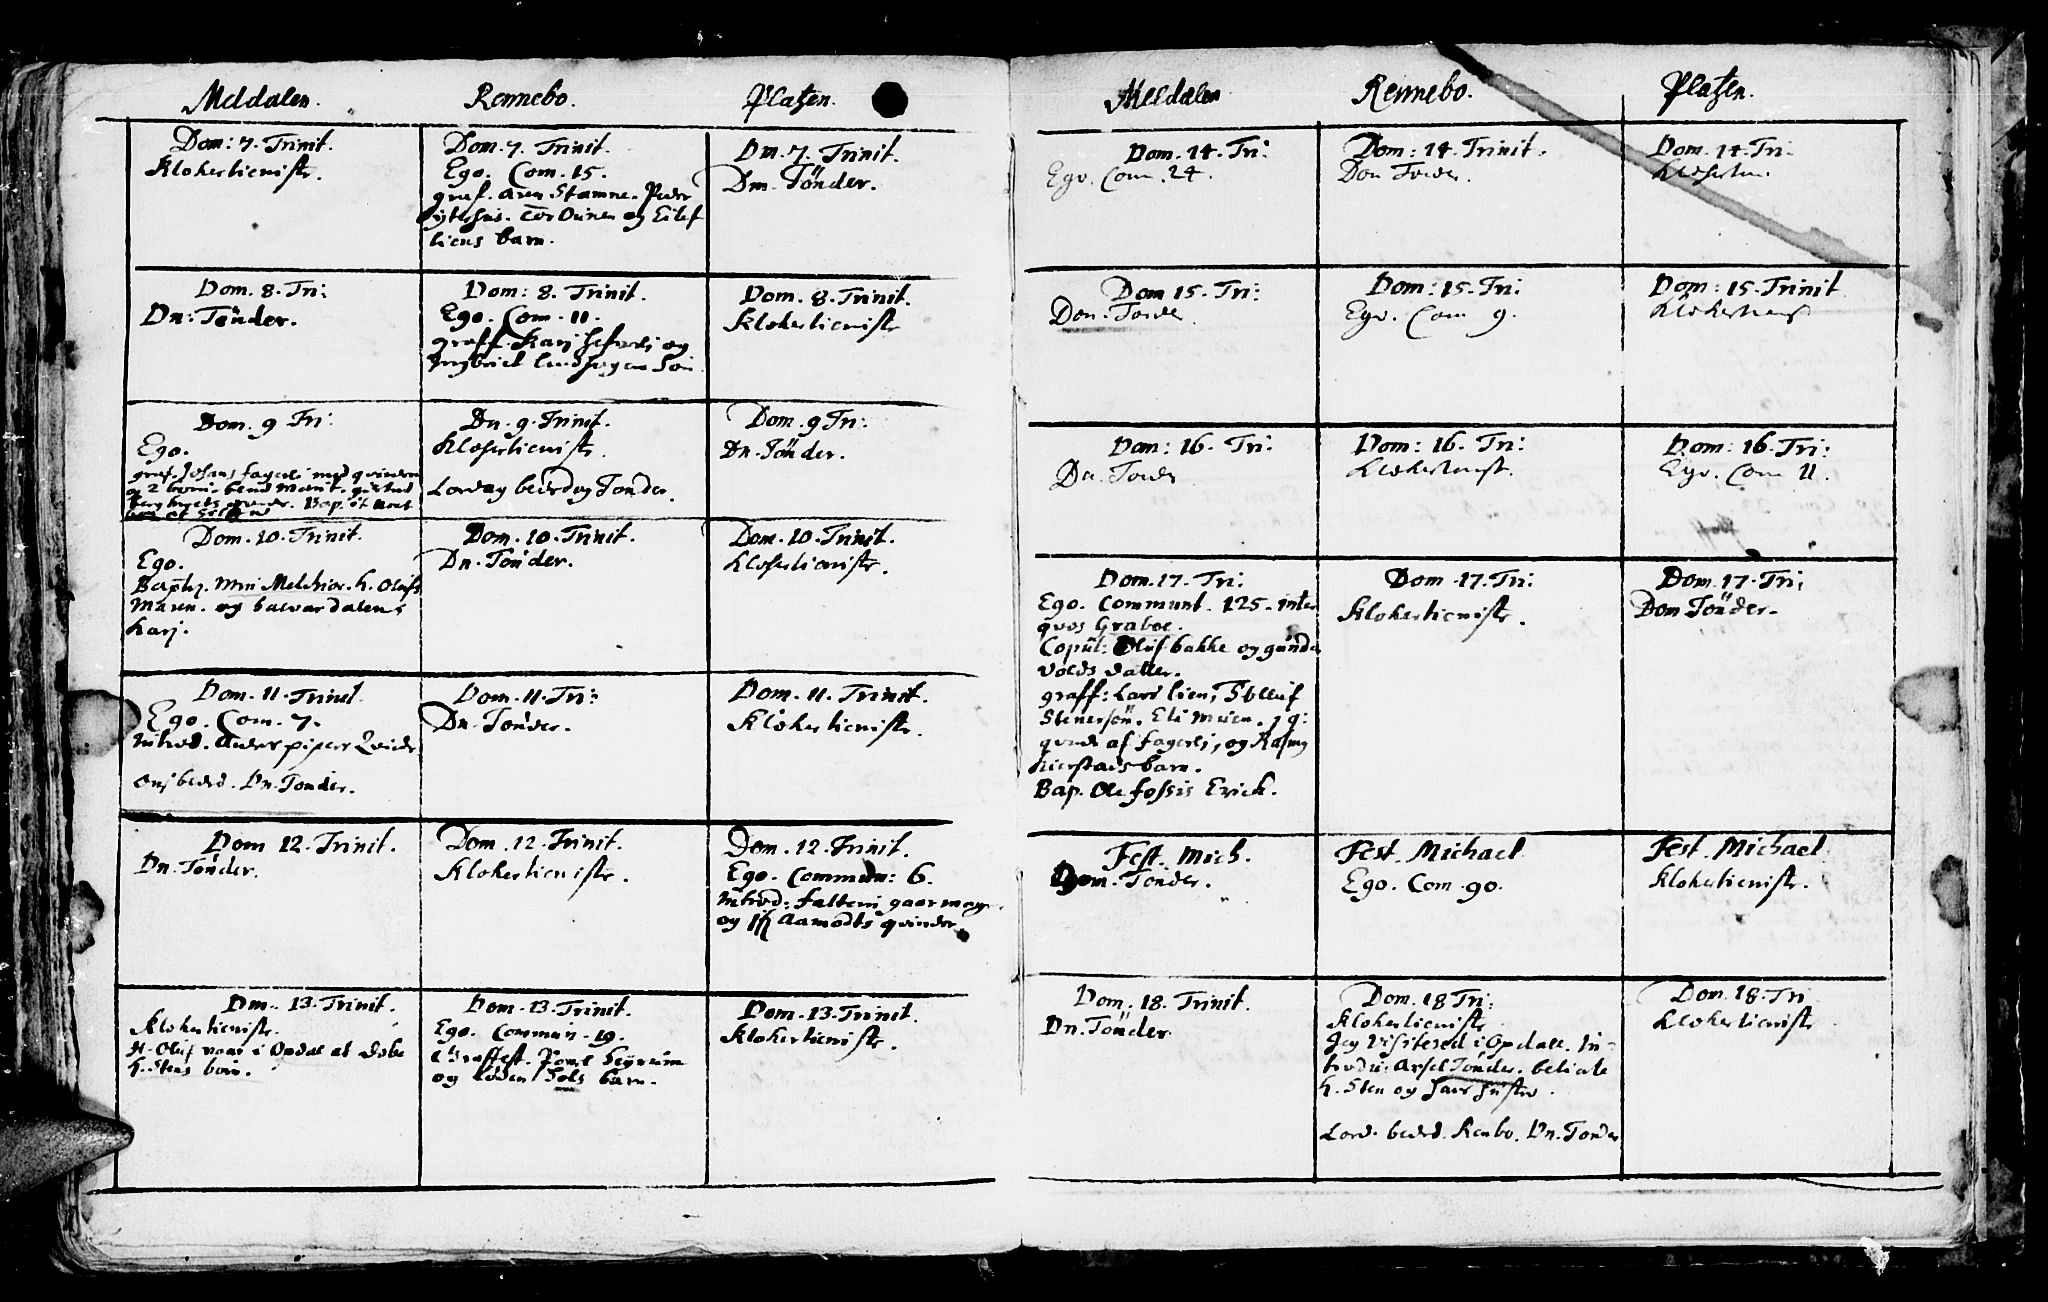 Meldalen.
Rennebo.
Platzen.
Dom: 7. Trinit.
Klokertieniste.
Dom. 7. Trinit.
Ego. Com. 15.
graf. Aren Stamne. Peder
og Eilef
liens barn.
Dm. 7. Trinit.
Dm. Tönder.
Dom. 8. Tri:
Dn: Tönder.
Dom: 8. Trinit.
Ego. Com. 11.
graff. Karj og
Dom. 8. Trinit.
Klokertieniste
Dom. 9 Tri:
Ego.
graf. Johans fagerli med qvinden
og 2 born.
Dn. 9. Trinit.
Klokertieniste.
Loverdag Tonder.
Dom. 9 Tri:
Dn. Tönder.
Dom. 10. Trinit.
Ego.
Baptiz. min Melchior. h. Olufs
Maren. og halvardalens
karj.
Dom. 10. Trinit.
Dn. Tönder.
Dom. 10. Trinit.
Klokertieniste.
Dom. 11. Trinit.
Ego. Com. 7.
Introd. Anders pipers Qvinde
Onsbeded. Dn. Tonder.
Dom. 11. Tri:
Dn. Tonder.
Dom. 11. Trinit.
Klokertieniste.
Dom 12. Trinit.
Dn. Tönder.
Dom. 12. Trinit.
Klokertieniste.
Dom. 12. Trinit.
Ego. Commun: 6.
Introd: faltens gaarmay
og Aamodts qvinder
Dm. 13. Trinit.
Klokertieniste.
H. Oluf vaar i Opdal at döbe
h. Stens born.
Dom. 13. Trinit.
Ego. Commun. 19.
Graffest. Povel
og barn.
Dom. 13. Trinit.
Klokertieniste.
Melldalen
Rennebo.
Platzen.
Dom. 14. Tri:
Ego. Com. 24.
Dom: 14. Trinit.
Don Tonder.
Dom. 14. Tri.
Dom 15. Tri:
Don. Tonder
Dom: 15. Tri:
Ego. Com 9.
Dom: 15. Trinit
Klokertienest
Dom: 16. Tri:
Dn. Tonder
Dom: 16. Tri:
Klokertienest.
Dom: 16. Tri:
Ego. Com 11.
Dom. 17. Tri:
Ego. Communt. 125. inter
qvos Graboe.
Copul: Oluf bakke og gunda
volds datter.
graff: Lars lien, Stelluf
Stenersön. Eli Moien.
af fagerli, og Rasmus
kierstads barn.
Bap. Ole fossis Erick.
Dom. 17. Tri:
Klokertieniste.
Dom. 17. Tri:
Dom Tönder.
Fest. Mich.
Dom. Tonder.
Fest. Michael
Ego. Com. 90.
Fest. Michael
Klokertieniste.
Dom. 18. Trinit.
Dn. Tönder.
Dom. 18 Tri:
Klokertieniste
Jeg Visitered i Opdall. In-
trodu: Axsel Tönder. beliate
h. Sten og hans hustro.
Lord. beded. Renbo. Dn. Tonder
Dom. 18. Tri
Klokertieniste